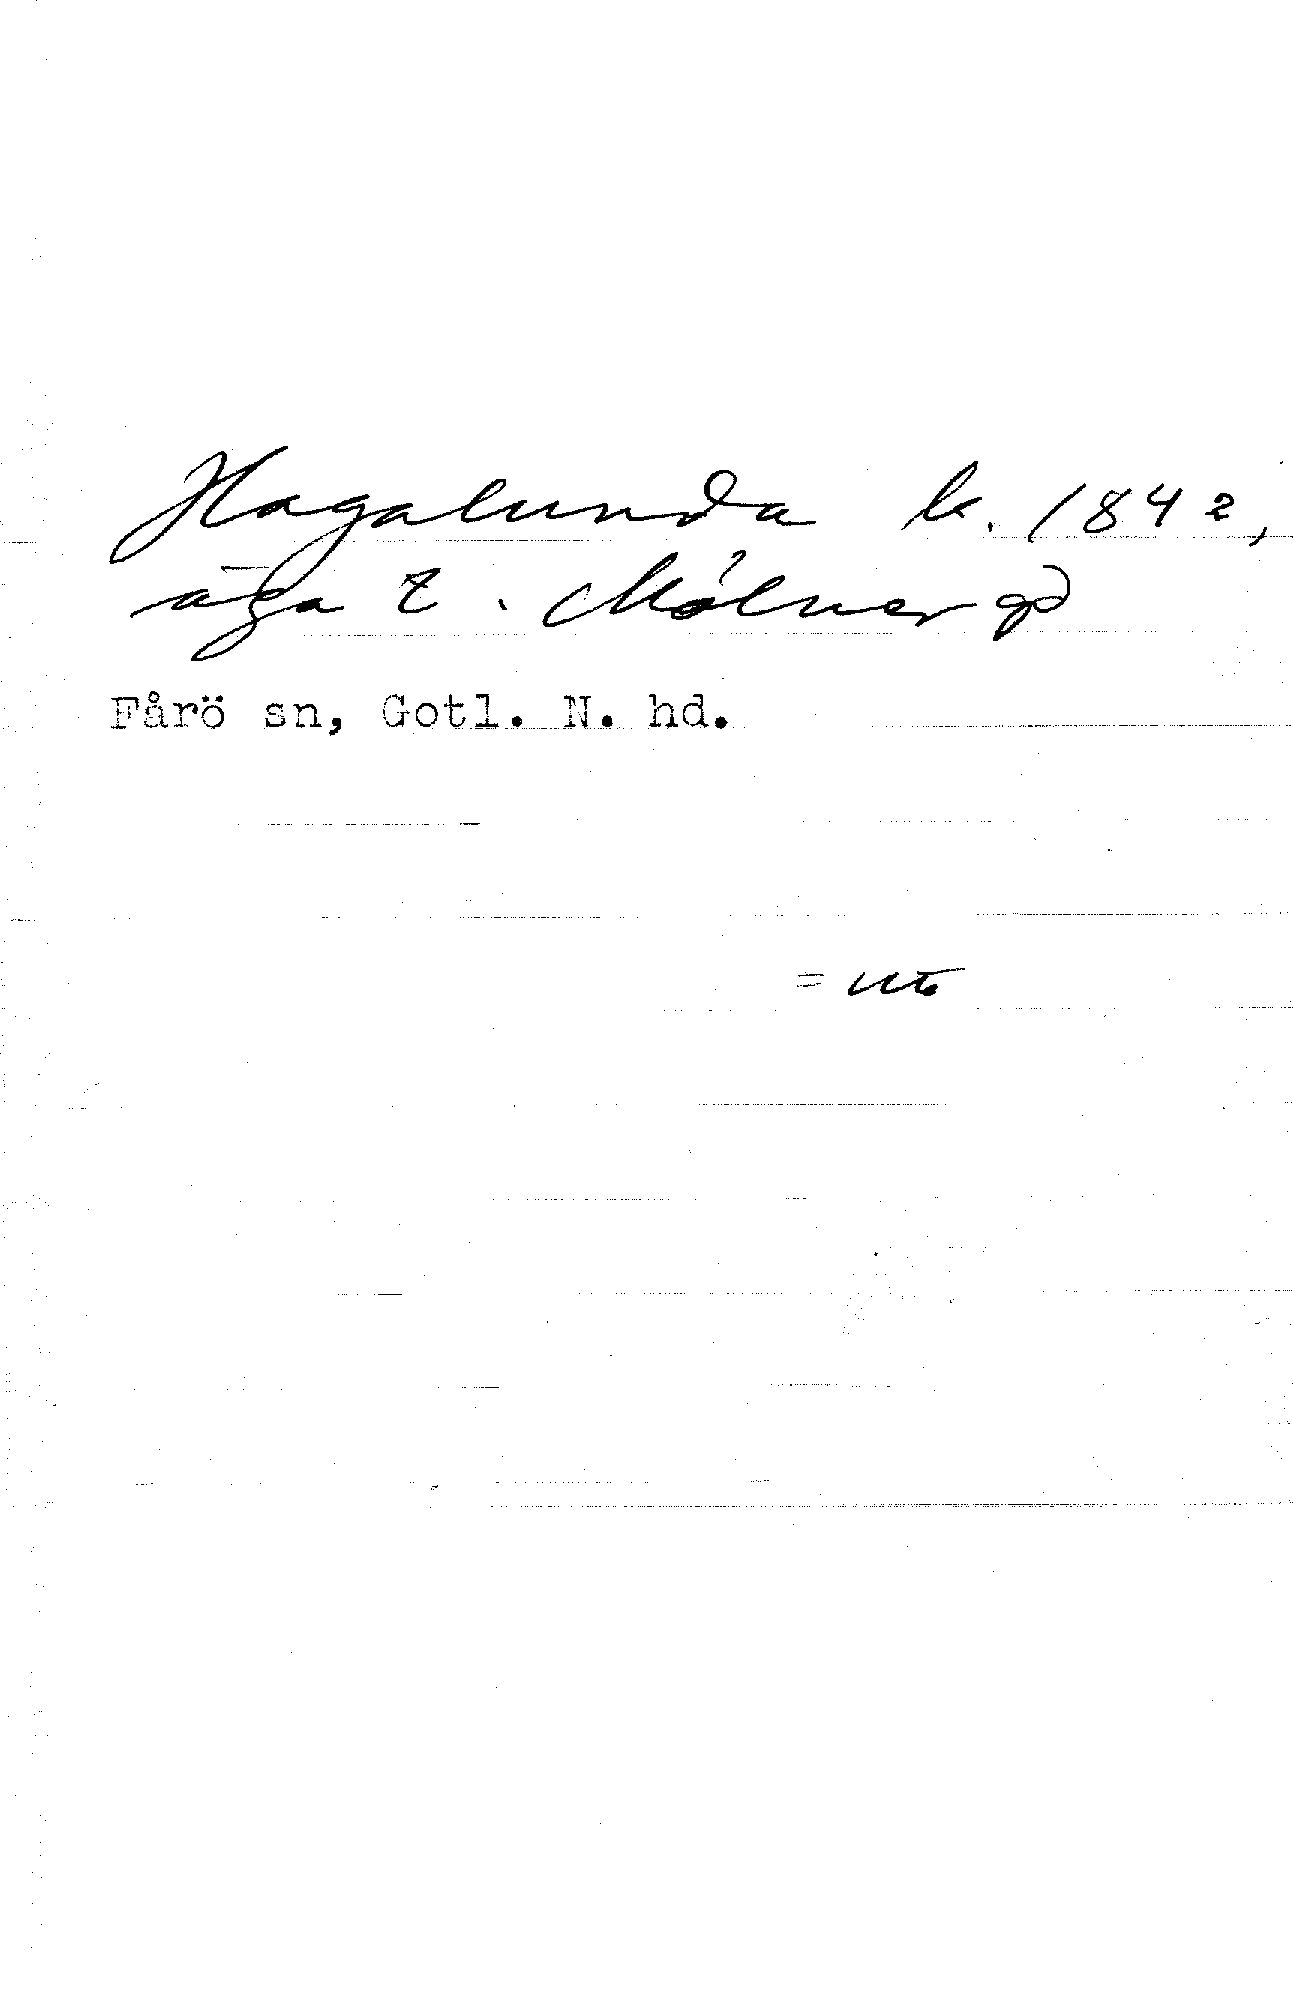 Hagalunda k. 1842,
äga t. Mölner gd
Fårö sn, Gotl. N. hd.